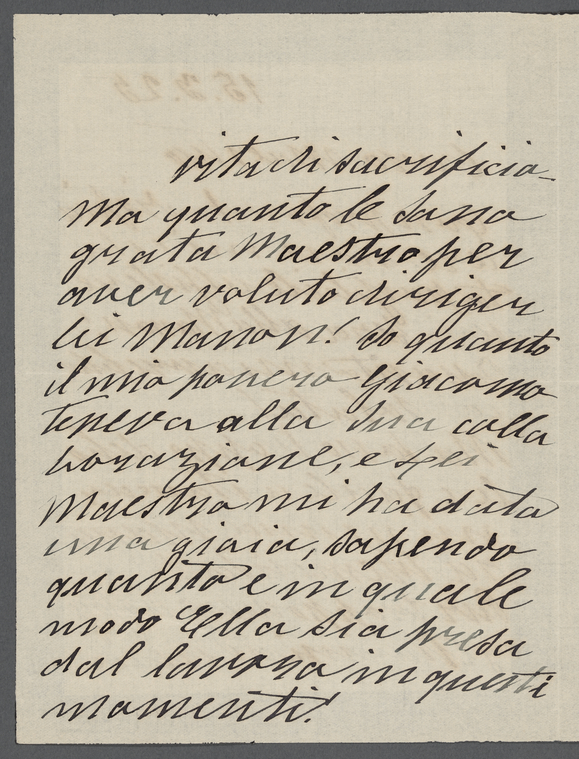 vita di sacrificio-
Ma quanto le sono
grata Maestro per
aver voluto diriger
lei Manon! So quanto
il mio povero Giacomo
teneva alla Sua colla
borazione, e Lei
Maestro mi ha dato
una gioia, sapendo
quanto e in quale
modo Ella sia presa
dal lavoro in questi
momenti!